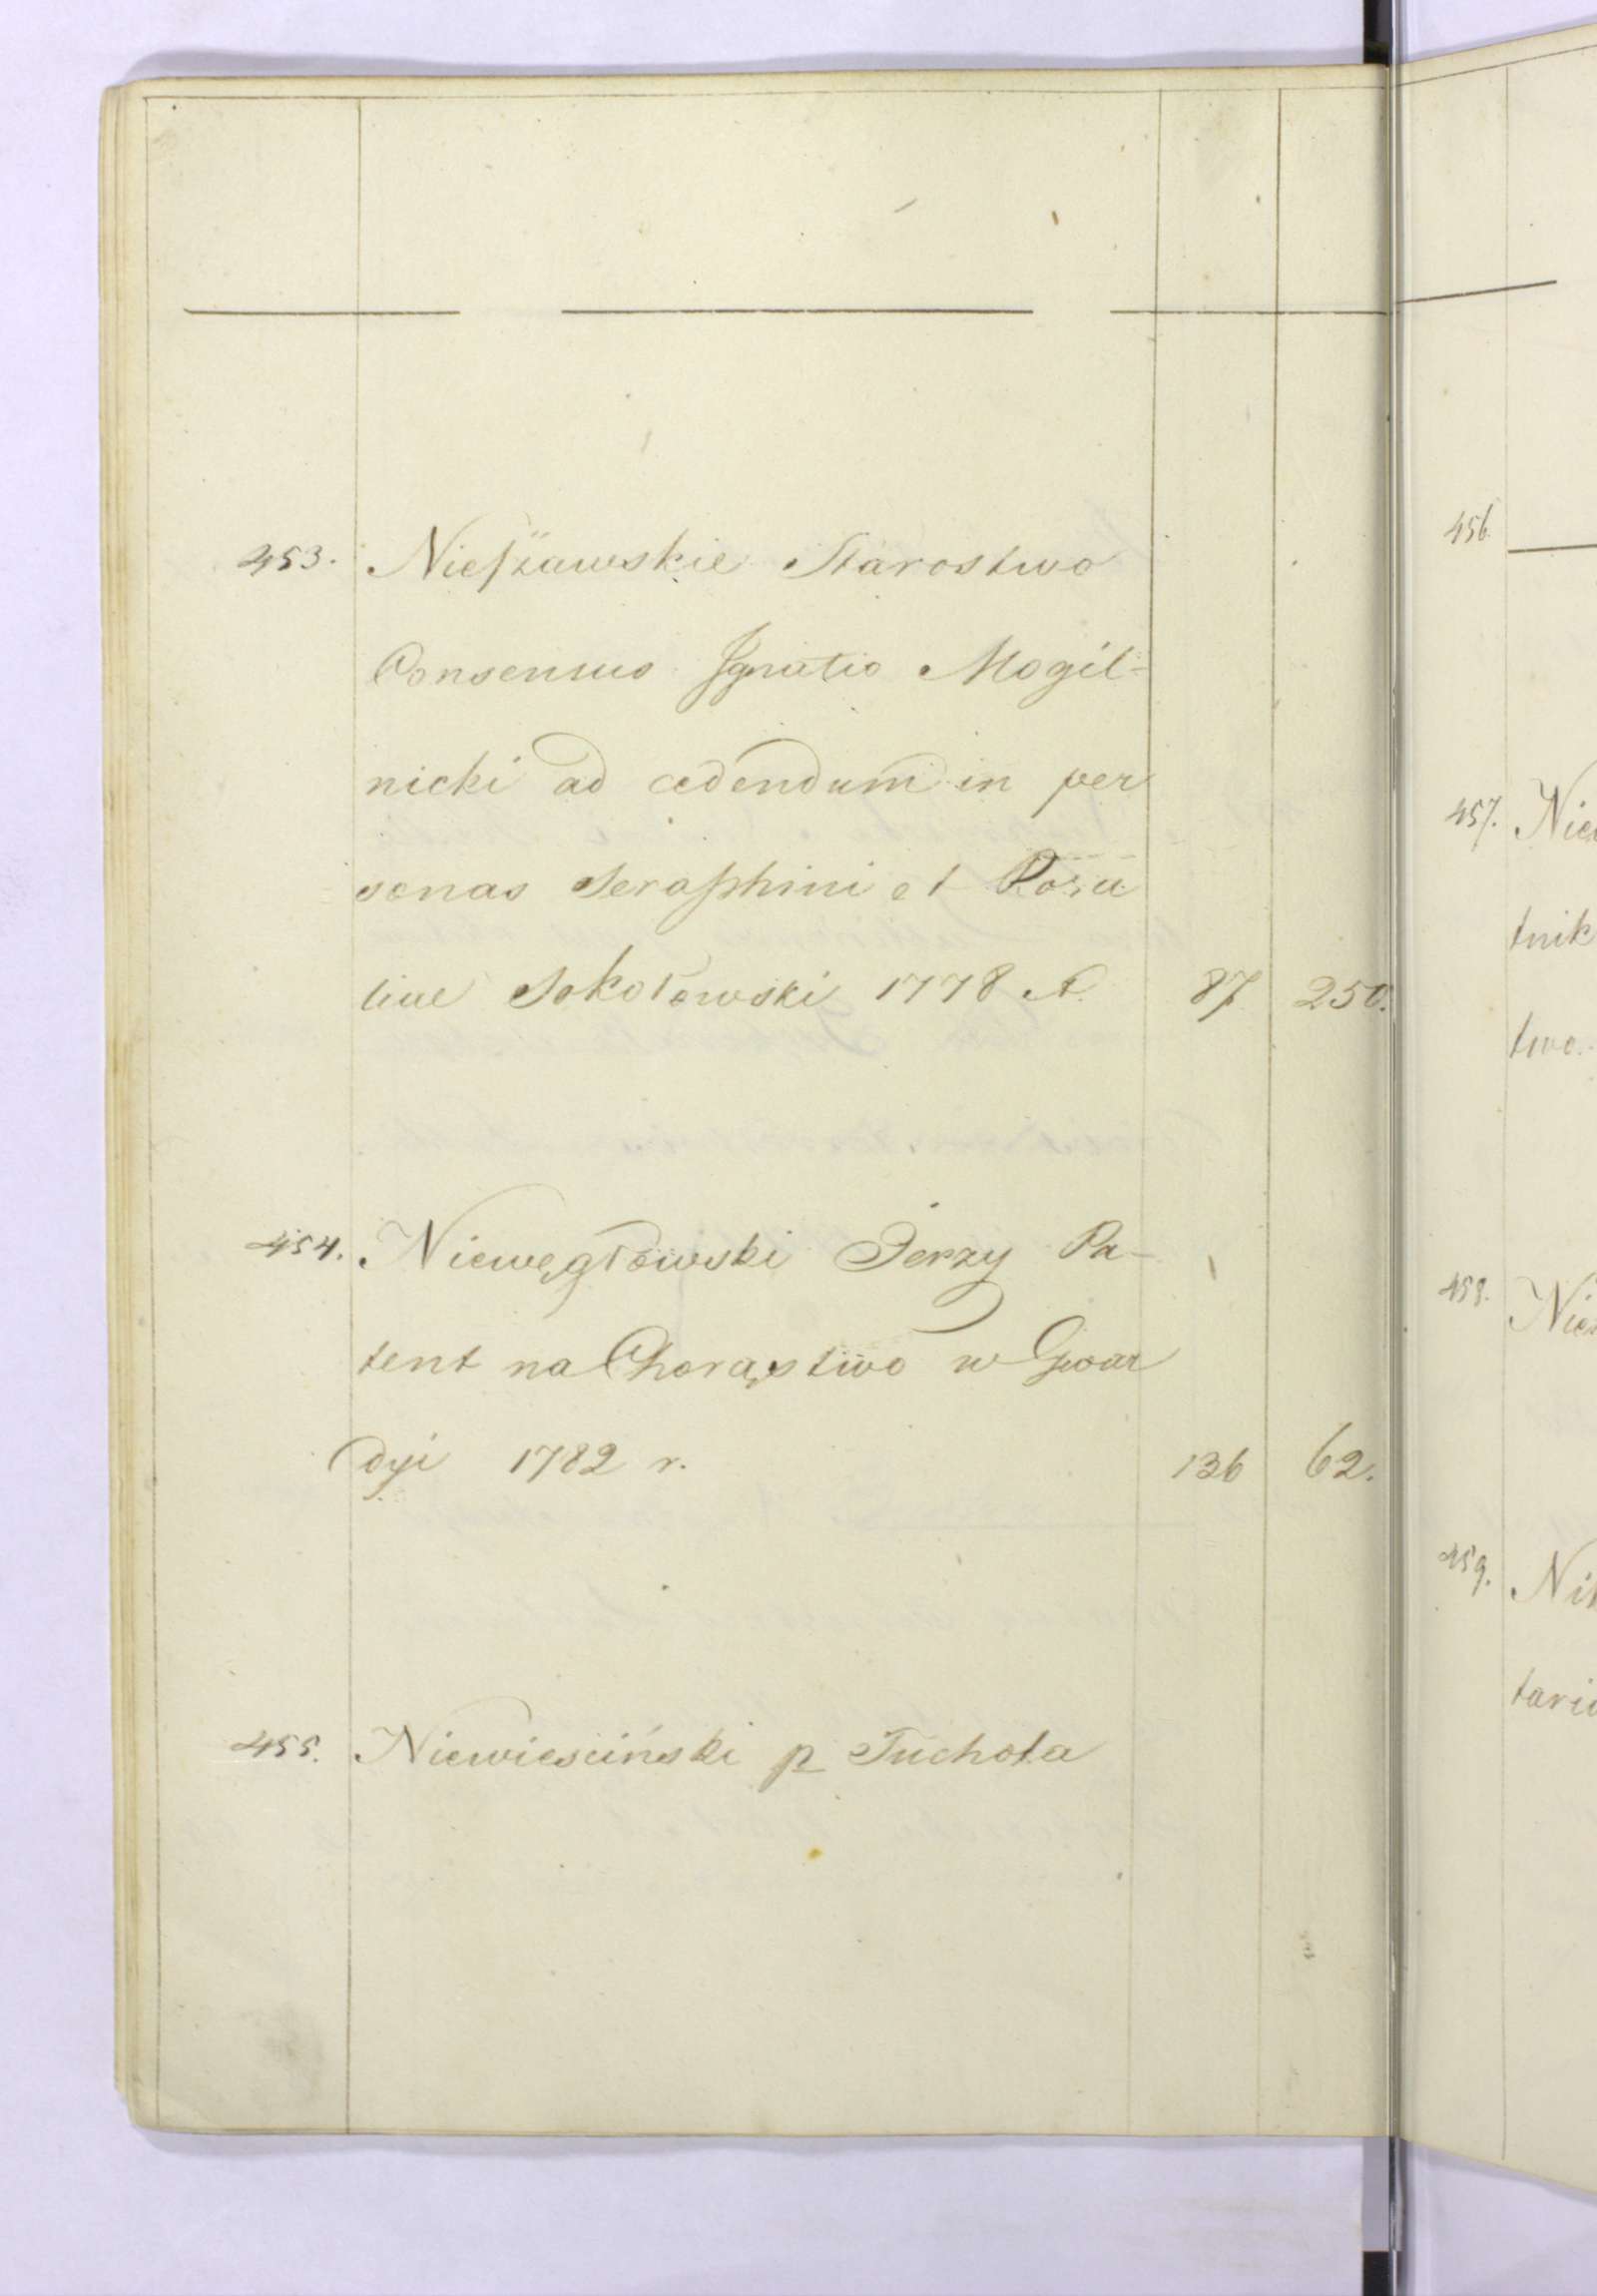 453. Nieſzawskie Starostwo
Consensus Ignatio Mogil=
nicki ad cedendum in per
sonas Seraphini et Rosa
liae Sokołowski 1778 A. 87 250.
454. Niewęgłowski Jerzy Pa-
tent na Chorąstwo w Gwar
dyi 1782 r. 136 62.
455. Niewieściński p Tuchola
456.
457. Nie
tnik
two.
458. Nie
459. Ni
tari